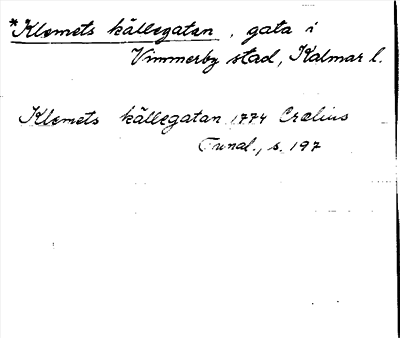 *Klemets källegatan, gata i
Vimmerby stad, Kalmar l.
Klemets källegatan 1774 Crælius
Tunal., s. 197